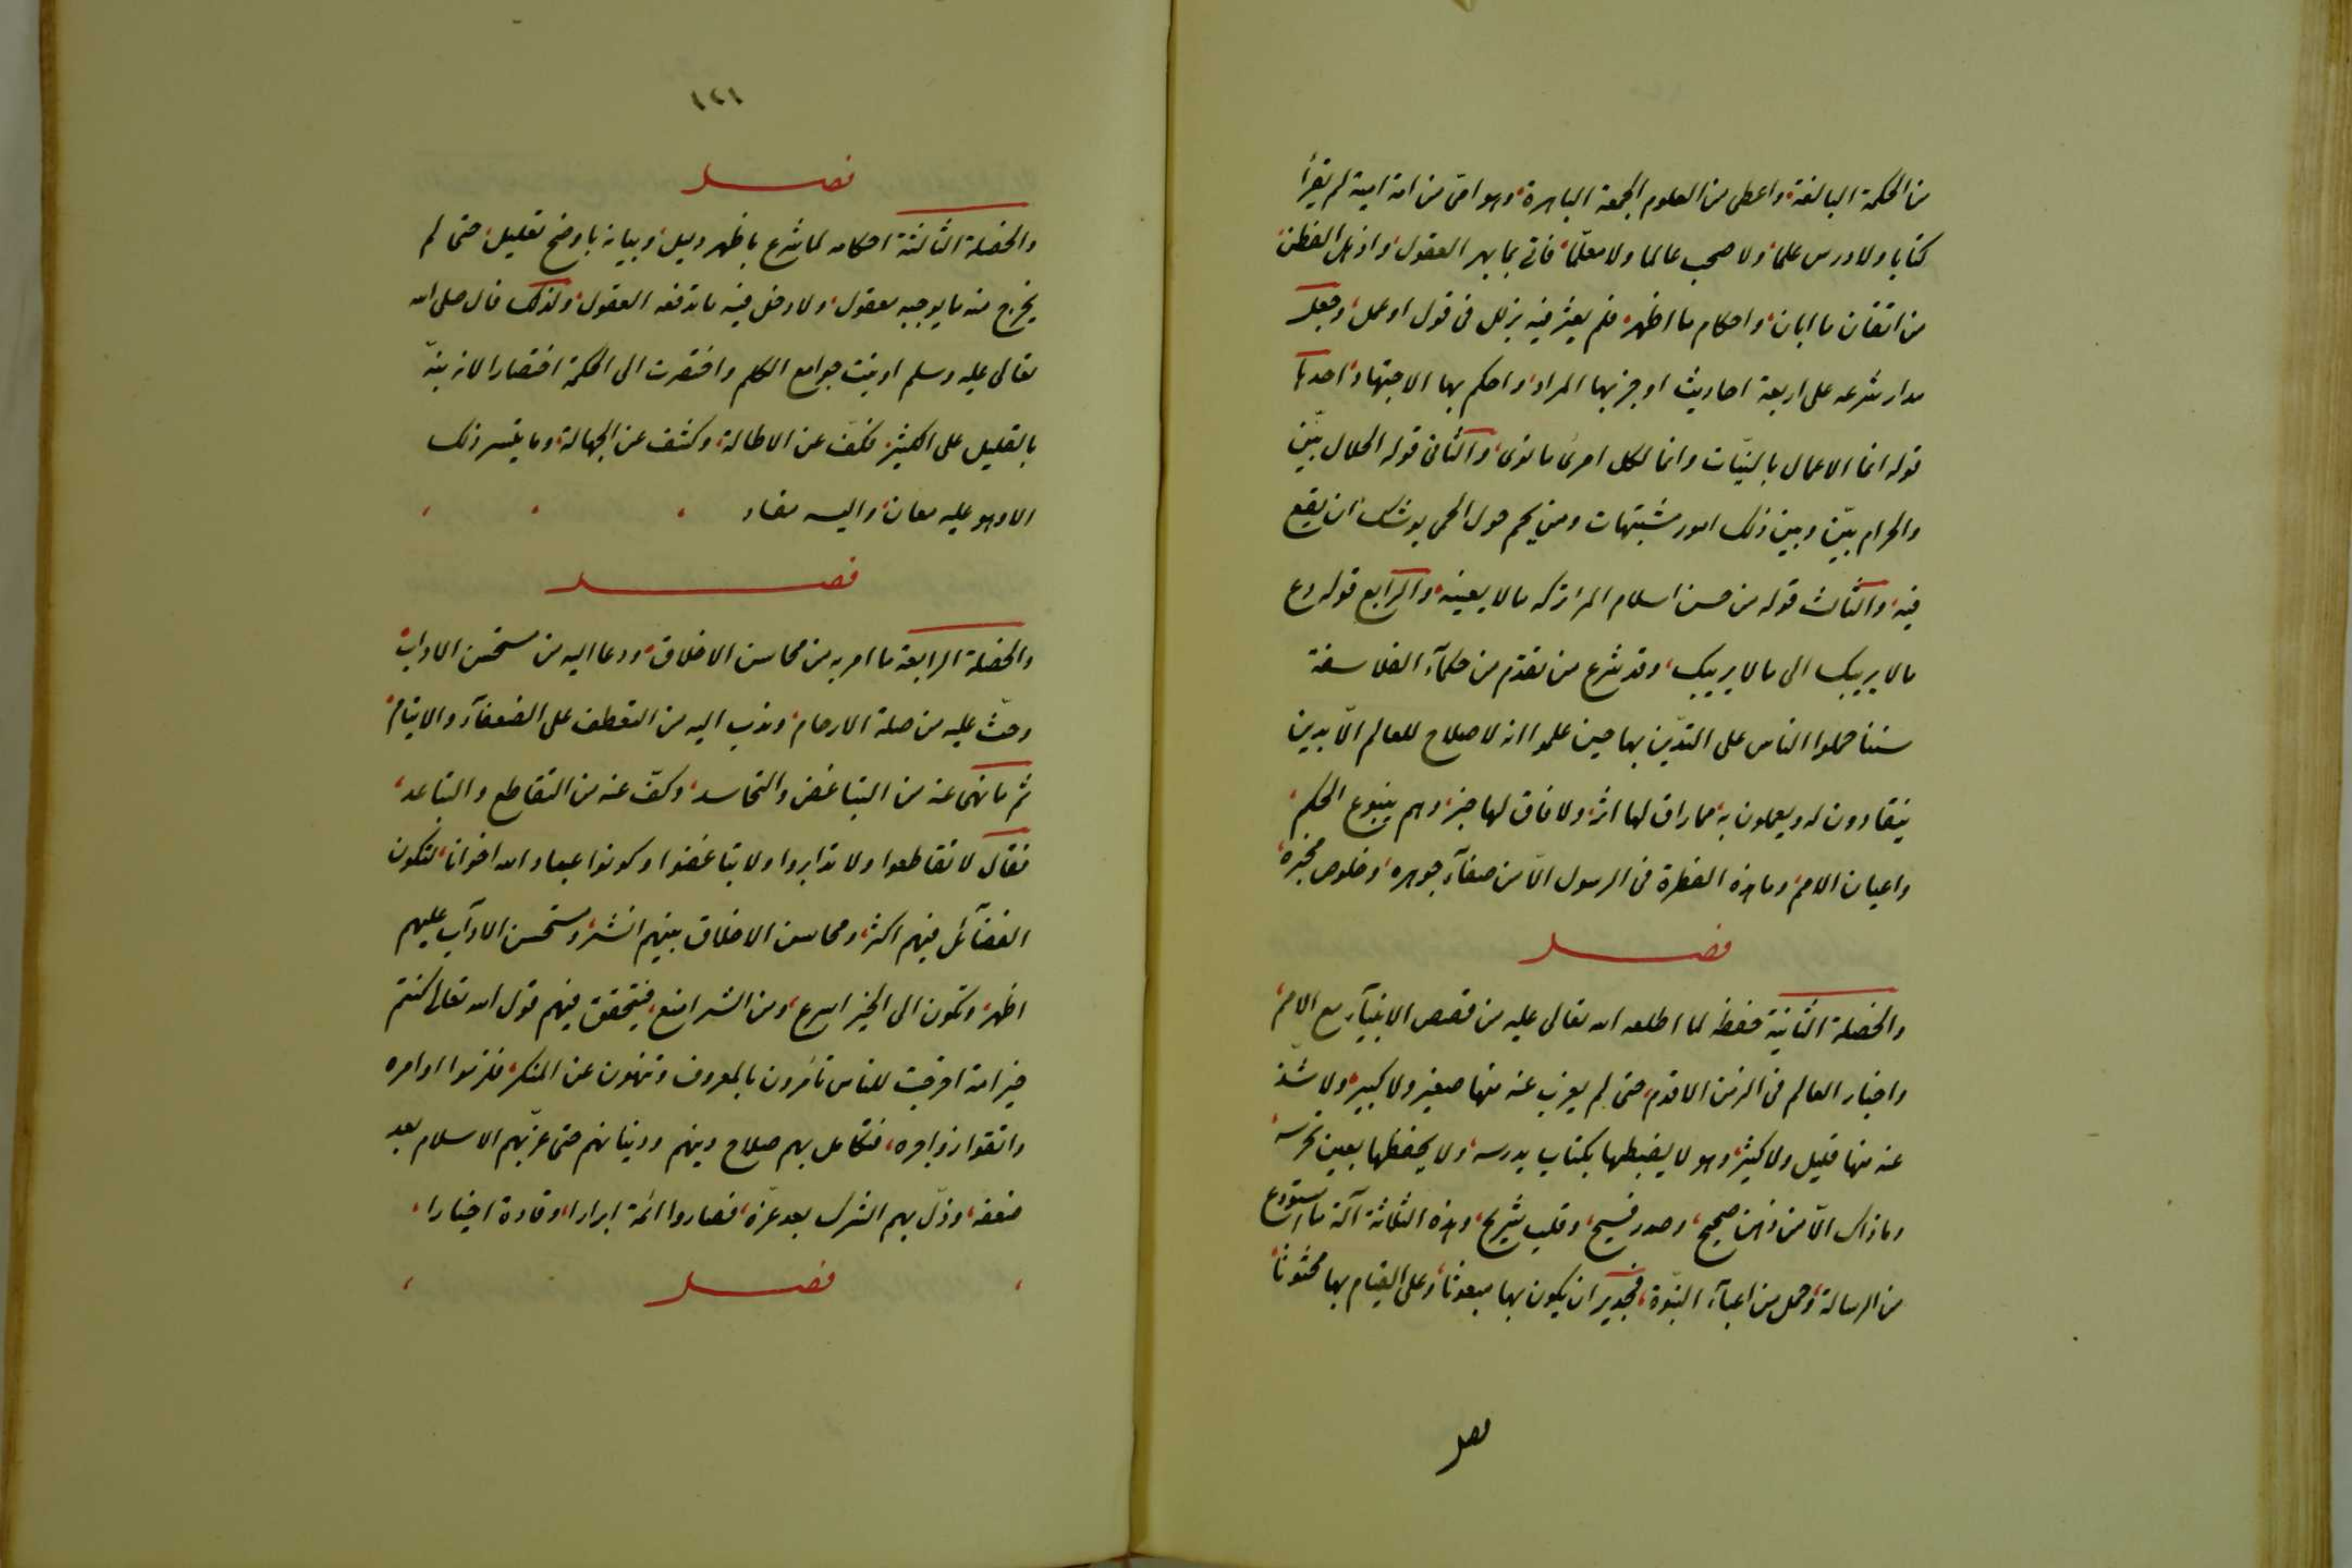 من الحكمة البالغة واعطى من العلوم الجمة الباهرة وهو امى من امة امية لم يقرأ
كتابا ولا درس علما ولا صحب عالما ولا معلما فاتى بما بهر العقول واذهل الفطن
من اتقان ما ابان واحكام ما اظهر فلم يعثر فيه بزلل فى قول او عمل وجعل
مدار شرعه على اربعة احاديث اوجز بها المراد واحكم بها الاجتهاد احدها
قوله انما الاعمال بالنيّات وانما لكل امرئ ما نوى والثانى قوله الحلال بيّن
والحرام بيّن وبين ذلك امور مشتبهات ومن يحم حول الحمى يوشك ان يقع
فيه والثالث قوله من حسن اسلام المرء تركه ما لا يعنيه والرابع قوله دع
ما لا يريبك الى ما لا يريبك وقد شرع من تقدّم من حكمآء الفلاسفة
سننا حملوا الناس على التديّن بها حين علموا انه لا صلاح للعالم الّا بدين
ينقادون له ويعملون به فما راق لها اثر ولا فاق لها خبر وهم ينبوع الحكم
واعيان الامم وما هذه الفطرة فى الرسول الّا من صفآء جوهره وخلوص مخبره
فصل
والخصلة الثانية حفظه لما اطلعه الله تعالى عليه من قصص الانبيآء مع الامم
واخبار العالم فى الزمن الاقدم حتى لم يعزب عنه منها صغير ولا كبير ولا شذّ
عنه منها قليل ولا كثير وهو لا يضبطها بكتاب يدرسه ولا يحفظها بعين تحرسه
وما ذاك الّا من ذهن صحيح وصدر فسيح وقلب شريح وهذه الثلاثة آلة ما استودع
من الرسالة وحمل من اعبآء النبّوة فجدير ان يكون بها مبعوثا وعلى القيام بها محثوثا
فصل
١٢١
فصل
والخصلة الثالثة احكامه لما شرع باظهر دليل وبيانه باوضح تعليل حتى لم
يخرج منه ما يوجبه معقول ولا دخل فيه ما تدفعه العقول ولذلك قال صلى الله
تعالى عليه وسلم اوتيت جوامع الكلم واختصرت الى الحكمة اختصارا لانه نبّه
بالقليل على الكثير فكفّ عن الاطالة وكشف عن الجهالة وما تيسر ذلك
الا وهو عليه معان واليه مقاد
فصل
والخصلة الرابعة ما امر به من محاسن الاخلاق ودعا اليه من مستحسن الاداب
وحثّ عليه من صلة الارحام وندب اليه من التعطف على الضعفآء والايتام
ثم ما نهى عنه من التباغض والتحاسد وكفّ عنه من التقاطع والتباعد
فقال لا تقاطعوا ولا تدابروا ولا تباغضوا وكونوا عباد الله اخوانا لتكون
الفضآئل فيهم اكثر ومحاسن الاخلاق بينهم انشر ومستحسن الادآب عليهم
اظهر وتكون الى الخير اسرع ومن الشر امنع فيتحقق فيهم قول الله تعالى كنتم
خير امة اخرجت للناس تأمرون بالمعروف وتنهون عن المنكر فلزموا اوامره
واتقوا زواجره فتكامل بهم صلاح دينهم ودنياهم حتى عزّ بهم الاسلام بعد
ضعفه وذلّ بهم الشرك بعد عزّه فصاروا ائمة ابرارا وقادة اخيارا
فصل